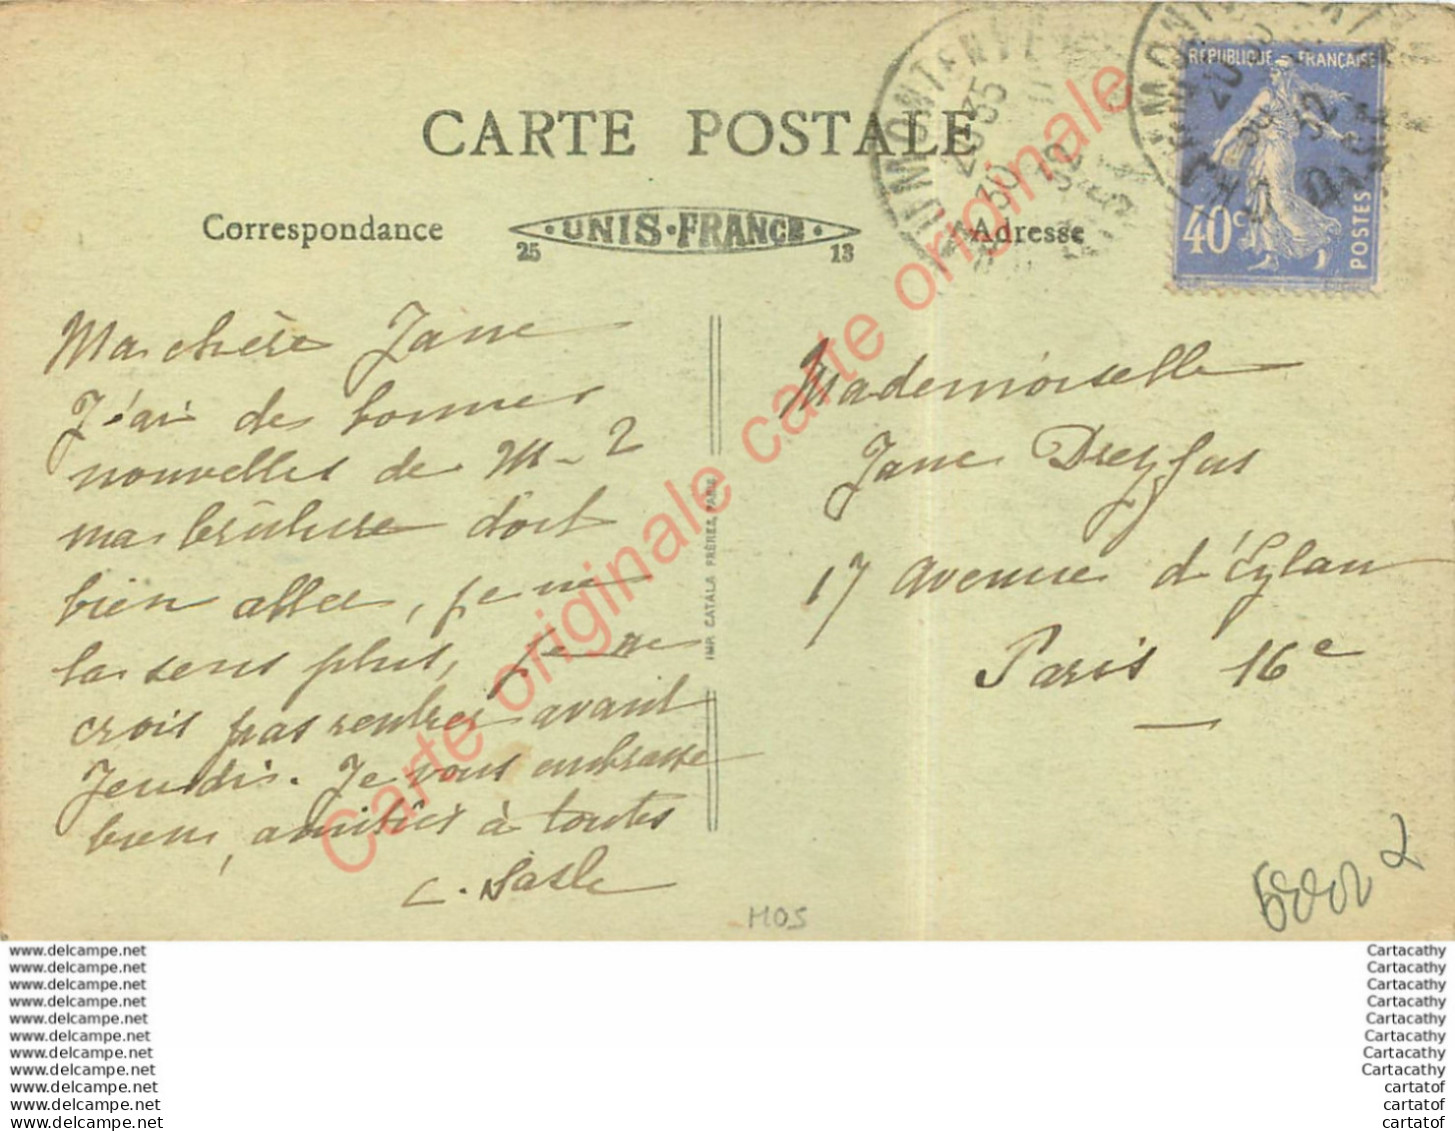 CARTE POSTALE
Correspondance
UNIS-FRANCE
25
13
Adresse
RÉPUBLIQUE FRANÇAISE
40c
POSTES
20 35
30
Ma chère Jane
J'ai de bonnes
nouvelles de M-2
ma brûlure doit
bien aller, je ne
la sens plus, je ne
crois pas rentrer avant
Jeudi. Je vous embrasse
bien, amitiés à toutes
IMP. CATALA FRÈRES, PARIS
Mademoiselle
Jane Dreyfus
17 avenue d'Eylau
Paris 16e
MOS
Carte originale carte originale carte originale
www.delcampe.net
www.delcampe.net
www.delcampe.net
www.delcampe.net
www.delcampe.net
www.delcampe.net
www.delcampe.net
www.delcampe.net
www.delcampe.net
www.delcampe.net
www.delcampe.net
Cartacathy
Cartacathy
Cartacathy
Cartacathy
Cartacathy
Cartacathy
Cartacathy
Cartacathy
cartatof
cartatof
cartatof